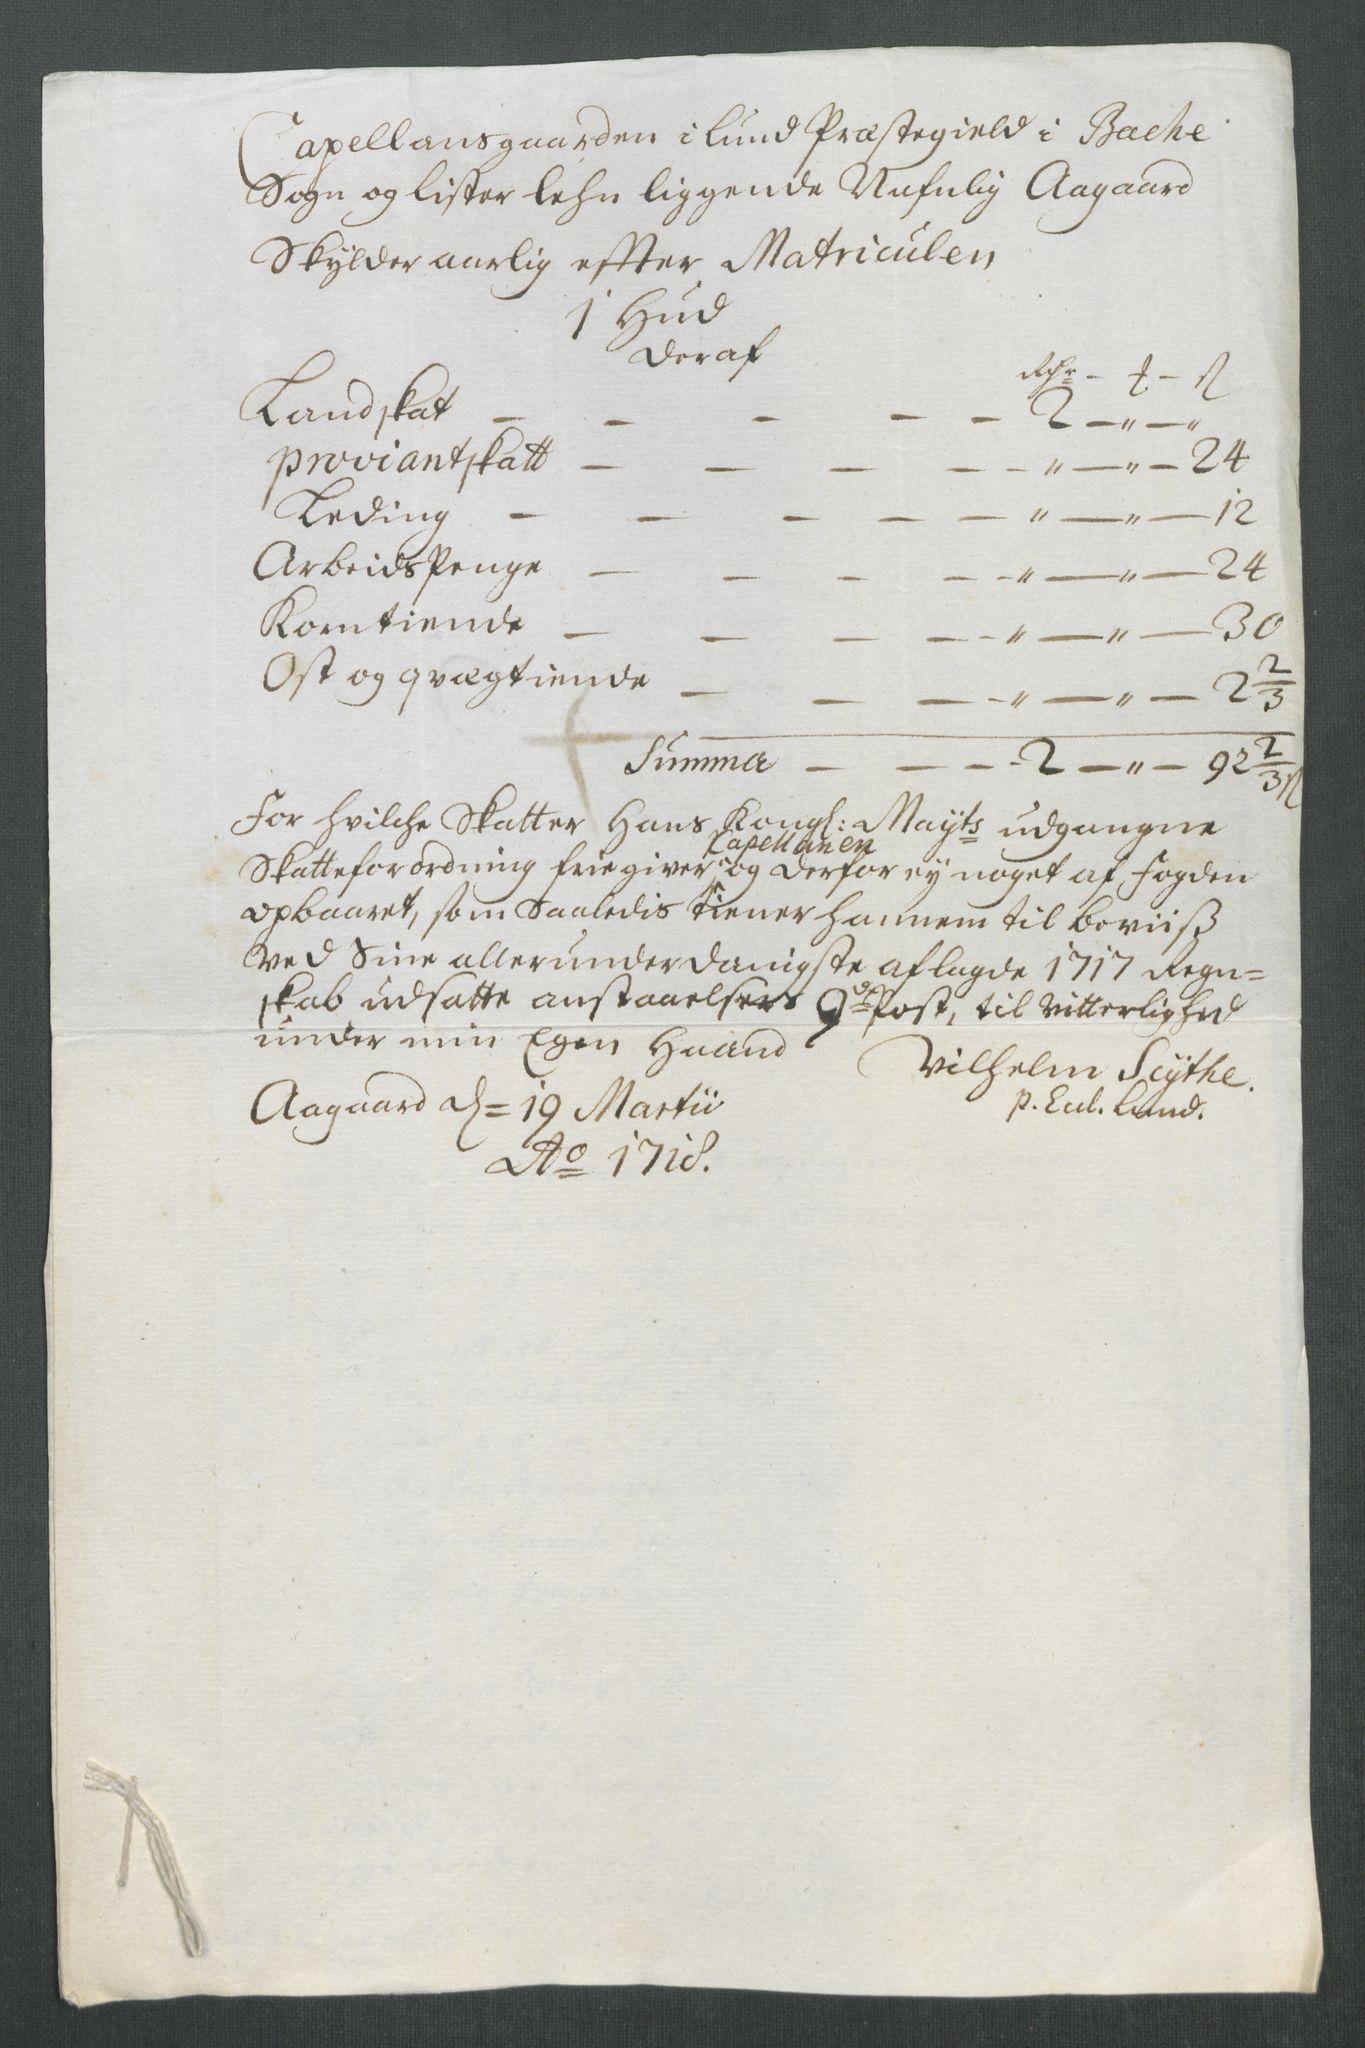 Capellansgaarden i Lund Præstegield i Bache
Sogn og Lister Lehn liggende Nafnlig Aagaard
Skylder aarlig effter Matriculen
1 Hud
deraf
Rdr - ₰ - ß
Landskat - - - - - 2 - " - "
Proviantskatt - - - - - " - " - 24
Leding - - - - - " - " - 12
ArbeidsPenge - - - - - " - " - 24
Korntiende - - - - - " - " - 30
Ost og qvægtiende - - - - " - " - 2 2/3
Summa - - - 2 - " - 92 2/3 ß
For hvilche Skatter Hans Kongl: Mayts udgangne
Capellanen
Skatteforordning friegiver, og derfor ey noget af Fogden
opbaaret, som Saaledis tiener hannem til beviiß
ved Sine allerunderdanigste aflagde 1717 Regn=
skab udsatte anstaaelsers 9de Post, til Vitterlighed
under min Egen Haand
Vilhelm Scythe.
Aagaard d= 19 Martii
P. Eccl. Lund.
Ao 1718.